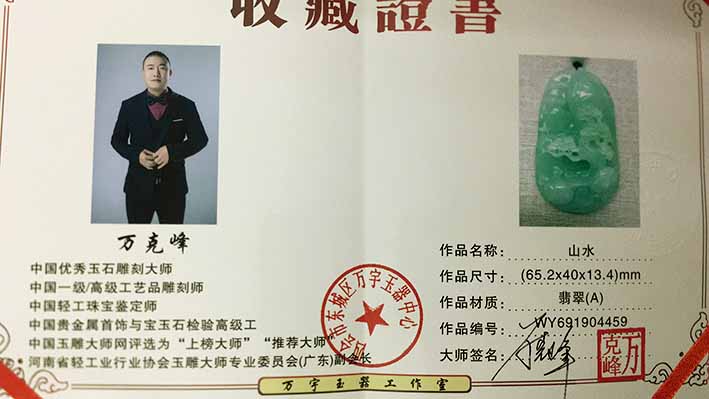 收藏證書
万克峰
中国优秀玉石雕刻大师
中国一级/高级工艺品雕刻师
中国轻工珠宝鉴定师
中国贵金属首饰与宝玉石检验高级工
中国玉雕大师网评选为“上榜大师”“推荐大师”
河南省轻工业行业协会玉雕大师专业委员会(广东)副会长
四会市东城区万宇玉器中心
作品名称: 山水
作品尺寸: (65.2x40x13.4)mm
作品材质: 翡翠(A)
作品编号: WY691904459
大师签名:
万克峰
万宇玉器工作室